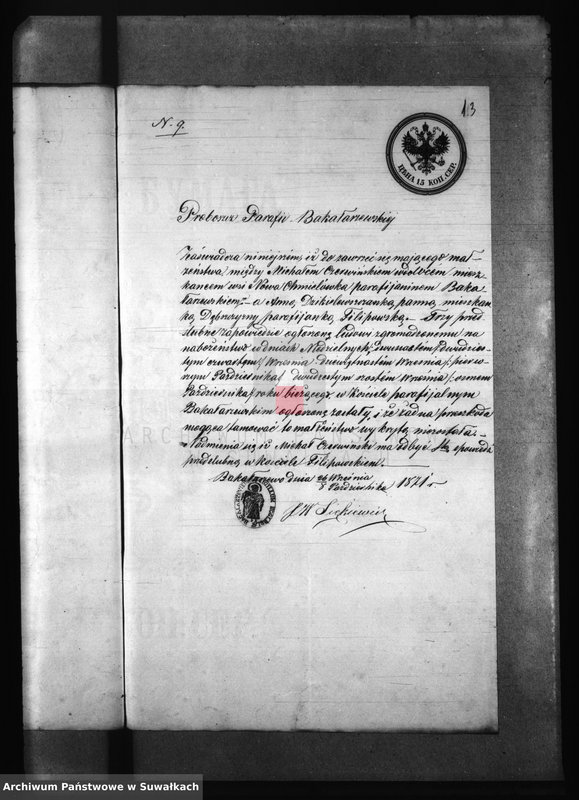 13
N. 9.
ЦѢНА 15 КОП. СЕР.
Proboszcz Parafii Bakałarzewskiej
Zaświadcza niniejszem, iż do zawrzeć się mającego mał-
żeństwa między Michałem Czerwińskim wdowcem miesz-
kańcem wsi Nowa Chmielówka parafijaninem Baka-
łarzewskim, a Anną panną, mieszkan-
ką parafijanką Filipowską. Trzy przed
ślubne zapowiedzie ogłoszone ludowi zgromadzonemu na
nabożeństwo w dniach Niedzielnych, dwudzies-
tym czwartym Września /pierw-
szym Października/ dwudziestym szóstem Września /ósmem
Października/ roku bieżącego, w Kościele parafijalnym
Bakałarzewskim ogłoszone zostały, i że żadna przeszkoda
mogąca tamować to małżeństwo wykrytą niezostała.
Nadmienia się iż Michał Czerwiński ma odbyć Stą spowiedź
przedślubną w Kościele Filipowskim.
Bakałarzewo dnia 26 Września / 8 Października 1871 r.
Archiwum Państwowe w Suwałkach